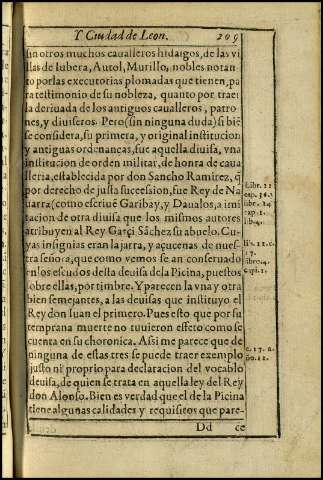 Y Ciudad de Leon. 209
sin otros muchos caualleros hidalgos, de las vi
llas de Iubera, Autol, Murillo, nobles notan
to por las executorias plomadas que tienen, pa
ra testimonio de su nobleza, quanto por traer
la deriuada de los antiguos caualleros, patro-
nes, y diuiseros. Pero (sin ninguna duda) si biẽ
se considera, su primera, y original institucion
y antiguas ordenanças, fue aquella diuisa, vna
institucion de orden militar, de honra de caua
lleria, establecida por don Sancho Ramirez, q̃
por derecho de justa succession, fue Rey de Na
uarra (como escriue Garibay, y Daualos, a imi
tacion de otra diuisa que los mismos autores
atribuyen al Rey Garçi Sãchez su abuelo. Cu-
yas insignias eran la jarra, y açucenas de nues-
tra señora, que como vemos se an conseruado
en los escudos desta deuisa dela Picina, puestos
sobre ellas, por timbre. Y parecen la vna y otra
bien semejantes, a las deuisas que instituyo el
Rey don Iuan el primero. Pues esto que por su
temprana muerte no tuuieron effeto como se
cuenta en su choronica. Assi me parece que de
ninguna de estas tres se puede traer exemplo
justo ni proprio para declaracion del vocablo
deuisa, de quien se trata en aquella ley del Rey
don Alonso. Bien es verdad que el de la Picina
tiene algunas calidades y requisitos que pare-
Dd ce
Libr. 22
cap. 1.
lib. 4.
17.
libro. 4.
capi. 1.
c. 17. a-
ño. 12.